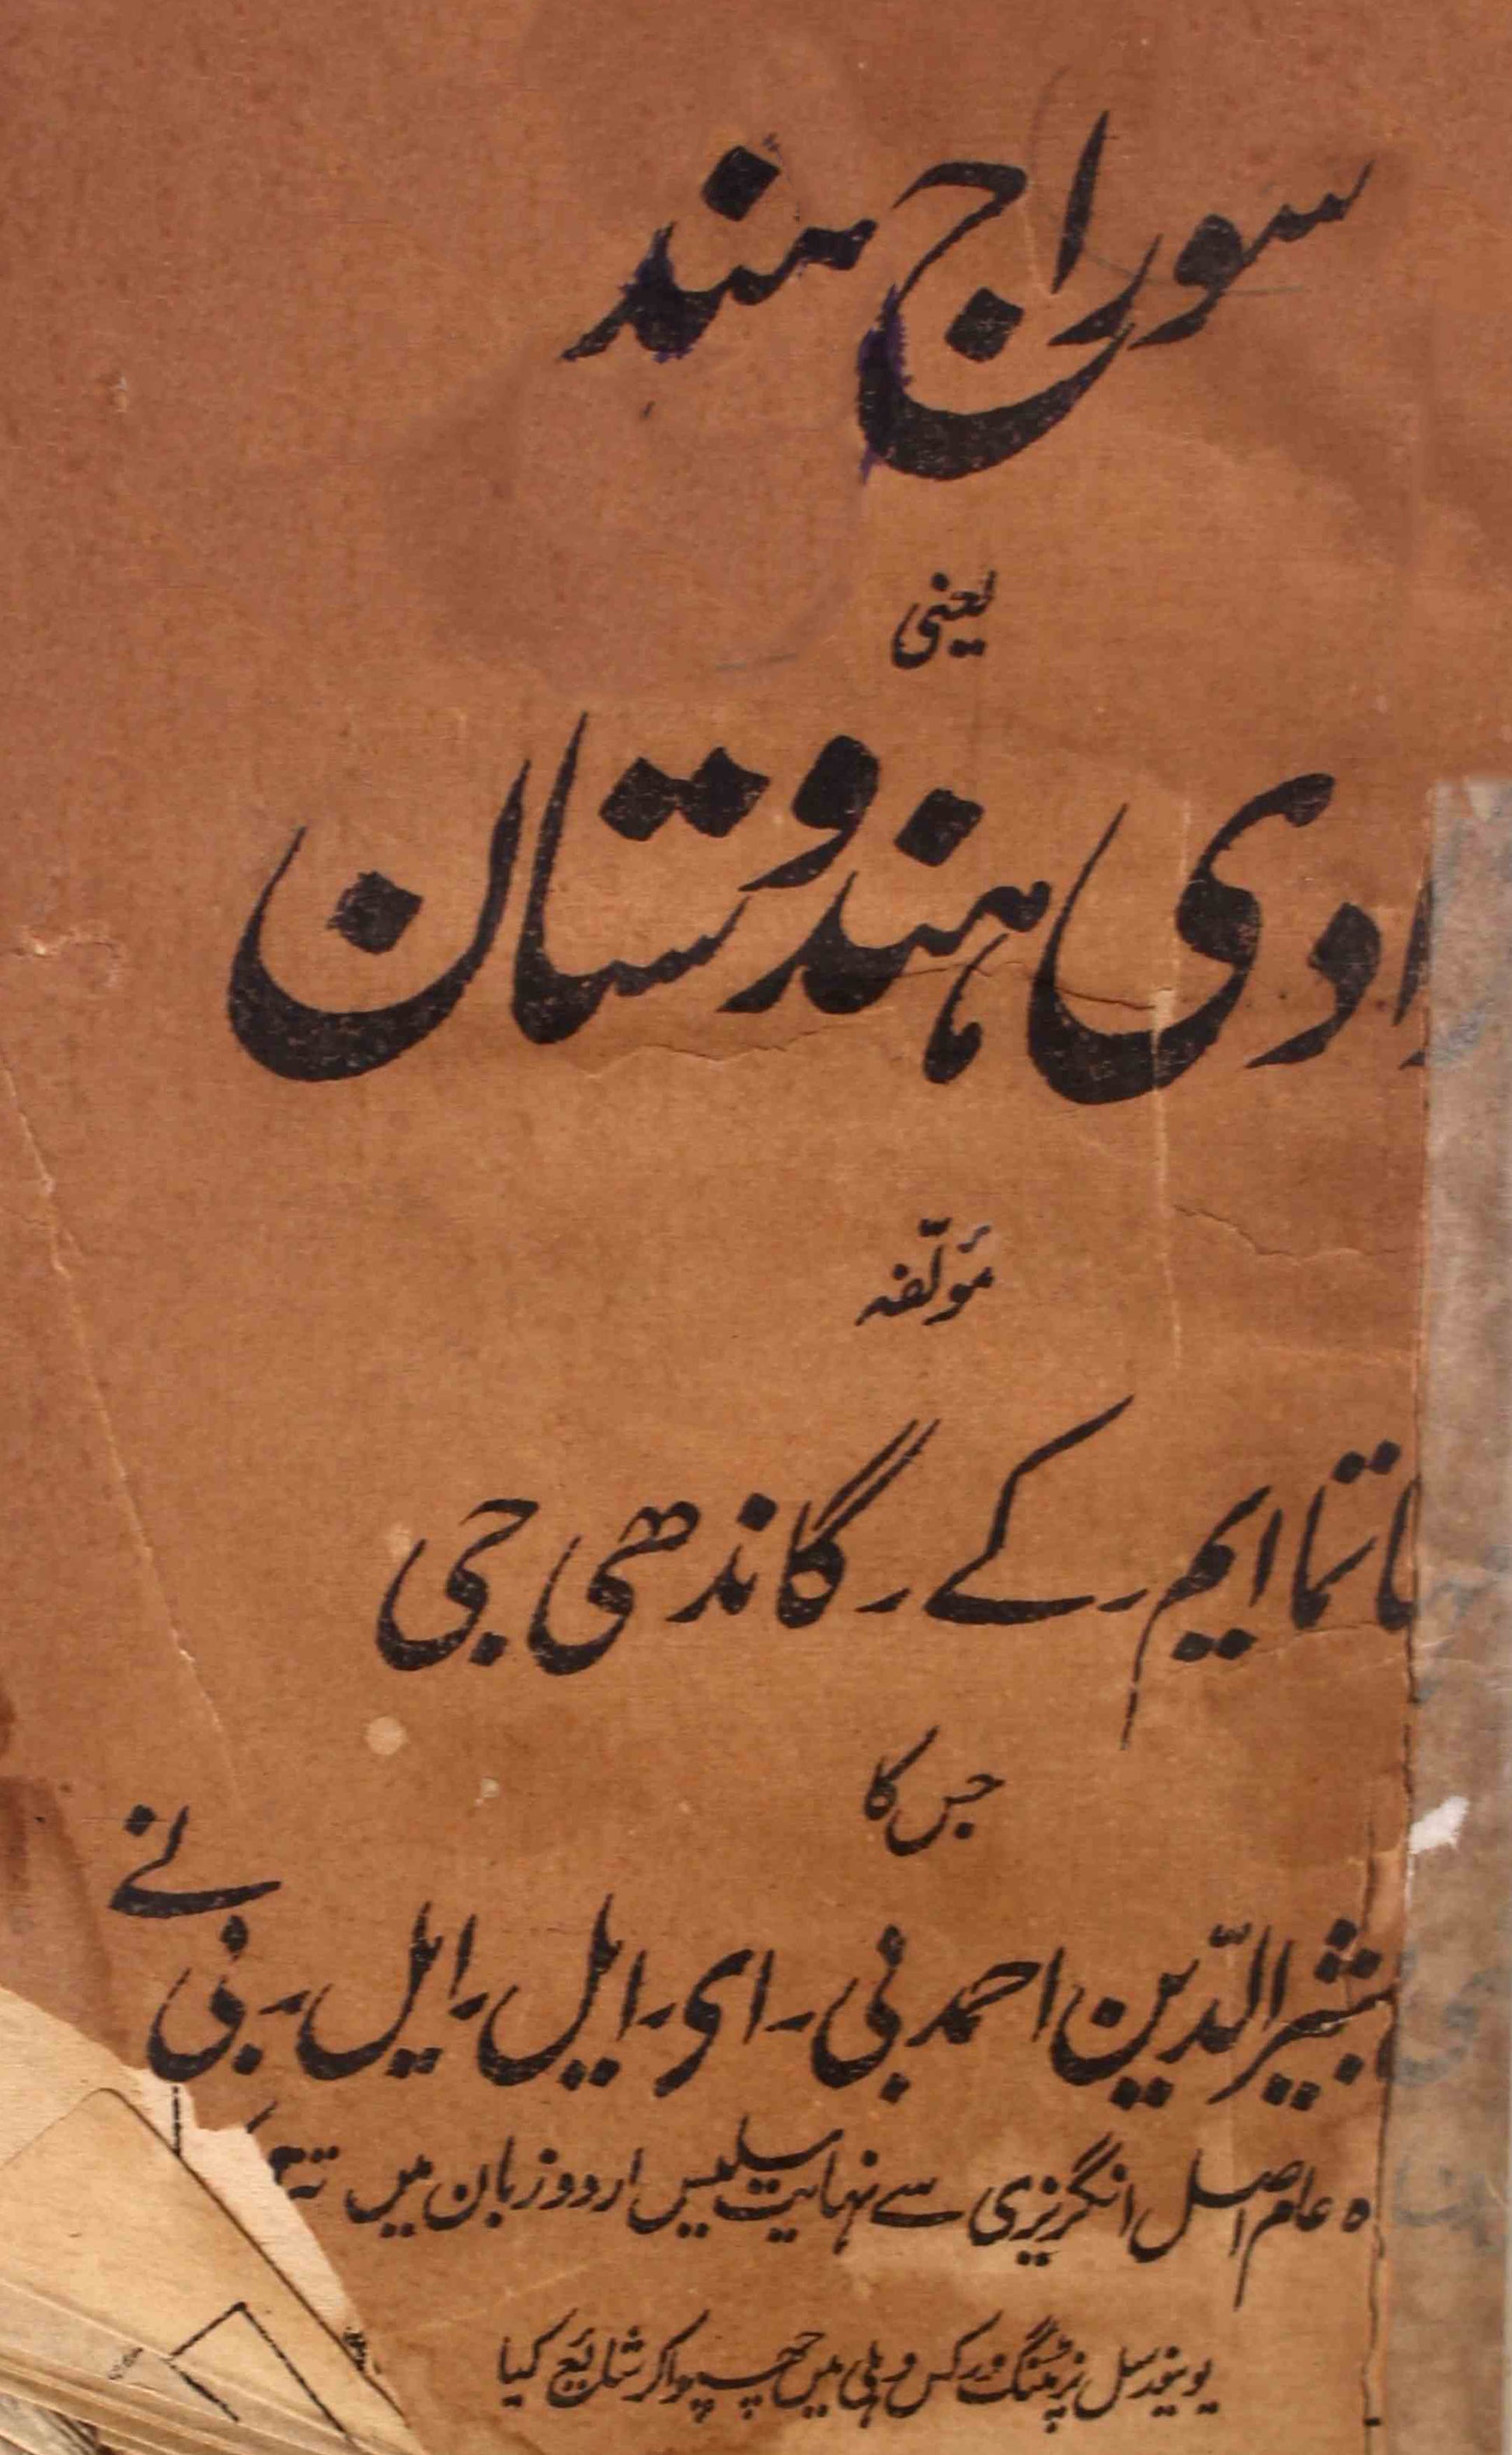 سوراج ہند
یعنی
ادی ہندوستان
مؤلّفہ
اتما ایم ۔ کے ۔ گاندھی جی
جس کا
بشیر الدّین احمد بی ۔ ای ۔ ایل ۔ ایل ۔ بی نے
ہ عام اصل انگریزی سے نہایت سلیس اردو زبان میں
یونیورسل پرنٹنگ ورکس دہلی میں چھپوا کر شائع کیا